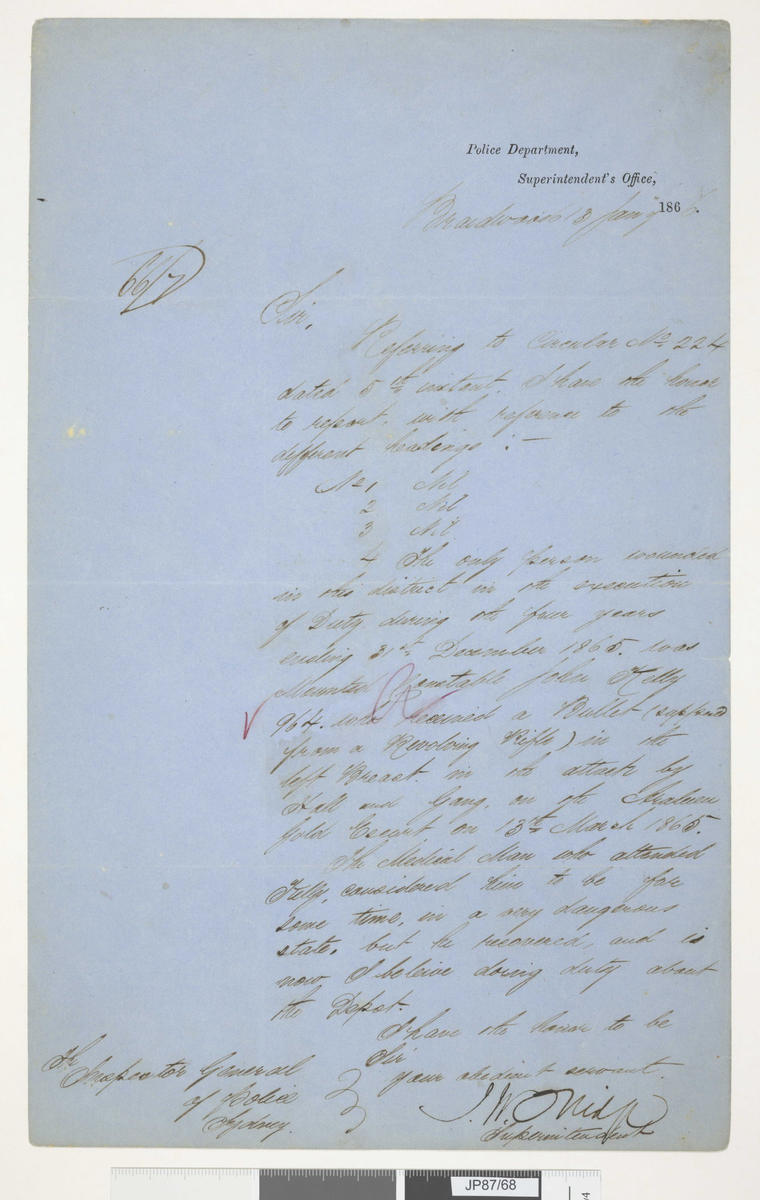 Police Department,
Superintendent's Office,
Braidwood 8 Jany 1866.
66/7
Sir,
Referring to Circular No 224
dated 5th instant. I have the honor
to report, with reference to the
different headings :—
No 1 Nil
2 Nil
3 Nil
4 The only person wounded
in this district in the execution
of Duty during the four years
ending 31st December 1865. was
Mounted Constable John Kelly
964. who received a Bullet (supposed
from a Revolving Rifle) in the
left Breast. in the attack by
Hall and Gang, on the Araluen
Gold Escort on 13th March 1865.
The Medical Man who attended
Kelly, considered him to be for
some time, in a very dangerous
state, but he recovered, and is
now, I beleive doing duty about
the Depot.
I have the honor to be
Sir
your obedient servant.
Superintendent
The
Inspector General
of Police
Sydney.
JP87/68